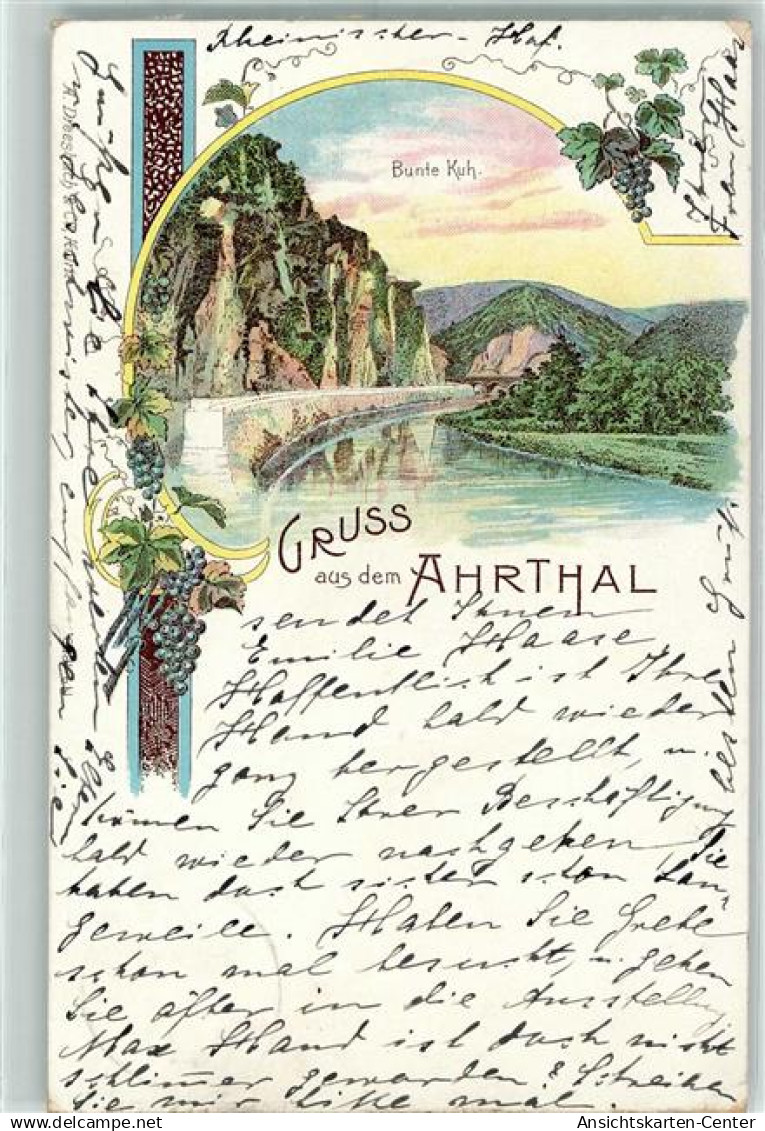 Rheinischer - Hof.
Bunte Kuh.
GRUSS
aus dem AHRTHAL
sendet Ihnen
Emilie Haase
Hoffentlich ist Ihre
Hand bald wieder
ganz hergestellt, u.
können Sie Ihrer Beschäftigung
bald wieder nachgehen Sie
haben doch sicher schon Lan-
geweile. Haben Sie Grete
schon mal besucht, u. gehen
Sie öfter in die Ausstellg
Max Hand ist doch nicht
schlimmer geworden? Schreiben
Sie mir bitte mal.
besten Gruß
Frau Haas
Grüßen Sie Ihre lieben Eltern
Ansichtskarten-Center